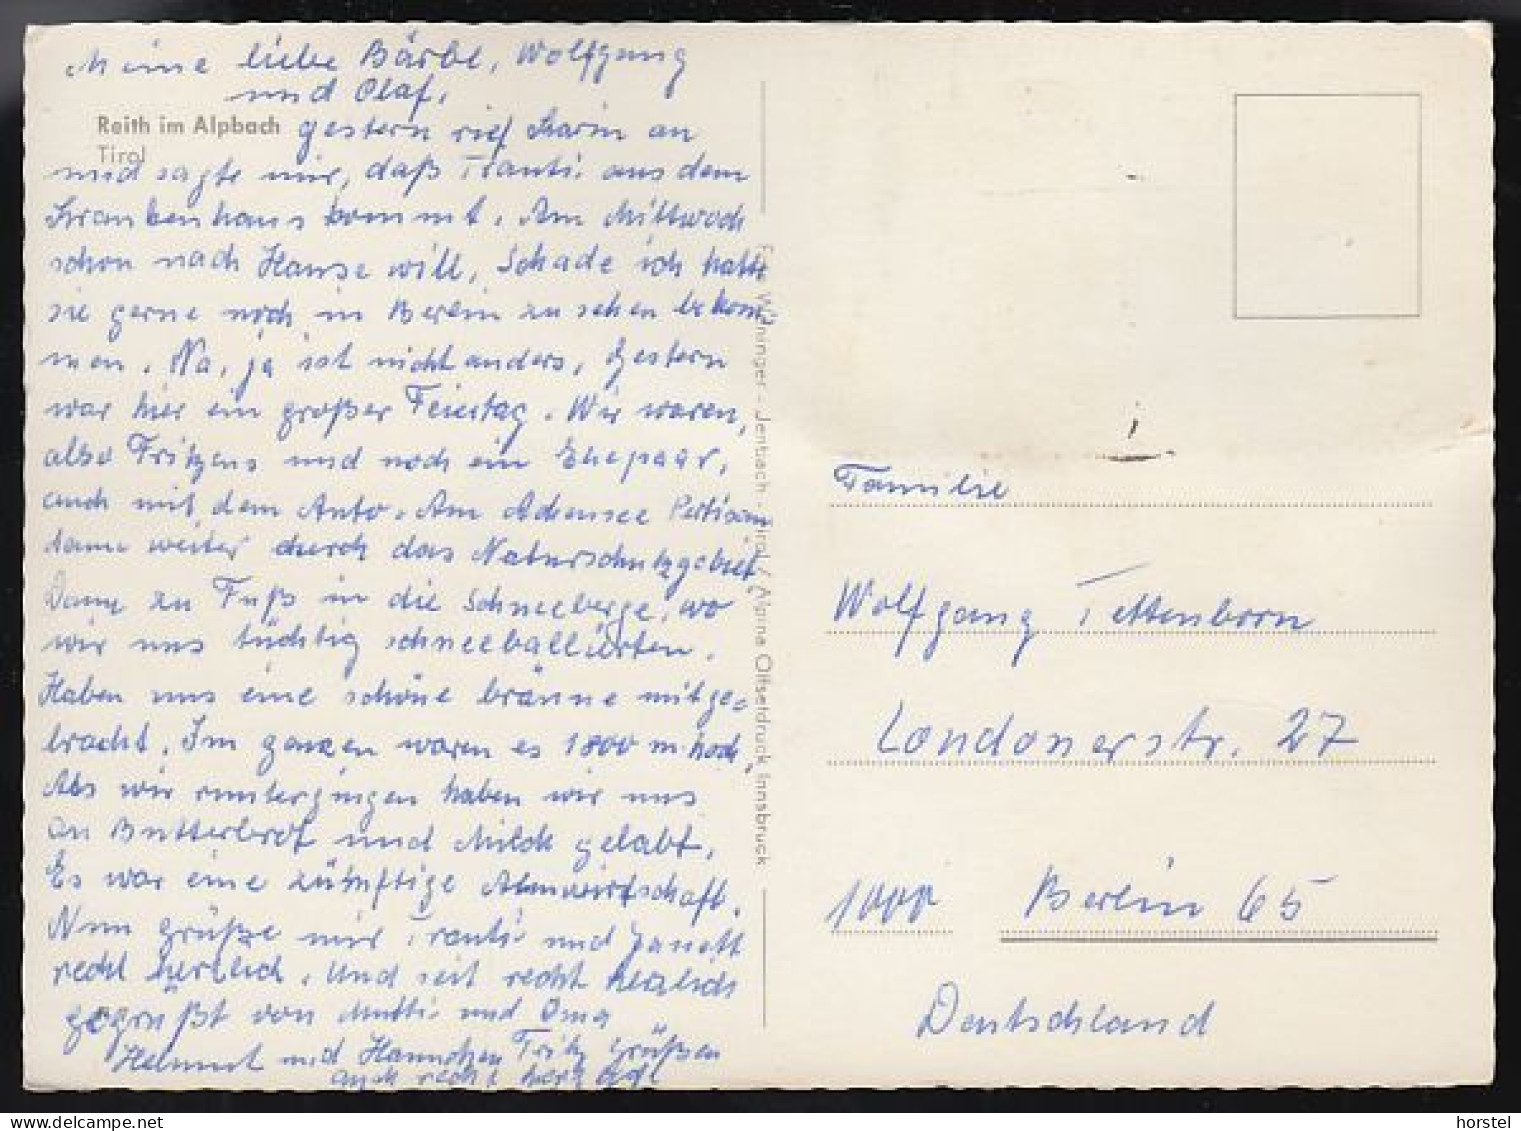 Meine liebe Bärbl, Wolfgang
und Olaf,
Reith im Alpbach
Tirol
gestern rief Karin an
und sagte mir, daß Trauti aus dem
Krankenhaus kommt. Am Mittwoch
schon nach Hause will, Schade ich hätte
sie gerne noch in Berlin zu sehen bekom-
men. Na, ja ist nicht anders, Gestern
war hier ein großer Feiertag. Wir waren,
also Fritzens und noch ein Ehepaar,
auch mit dem Auto. Am Achensee Pertisau
dann weiter durch das Naturschutzgebiet
Dann zu Fuß in die Schneeberge, wo
wir uns tüchtig schneeballierten.
Haben uns eine schöne bräune mitge-
bracht. Im ganzen waren es 1800 m hoch,
Als wir runtergingen haben wir uns
an Butterbrot und Milch gelabt.
Es war eine zünftige Almwirtschaft.
Nun grüße mir Trauti und Janett
recht herzlich. Und seit recht herzlich
gegrüßt von Mutti und Oma
Helmut und Hannchen Fritz grüßen
auch recht herzlich
Wininger - Jenbach - Tirol / Alpina Offsetdruck Innsbruck
Familie
Wolfgang Tettenborn
Londonerstr. 27
1000 Berlin 65
Deutschland
horstel